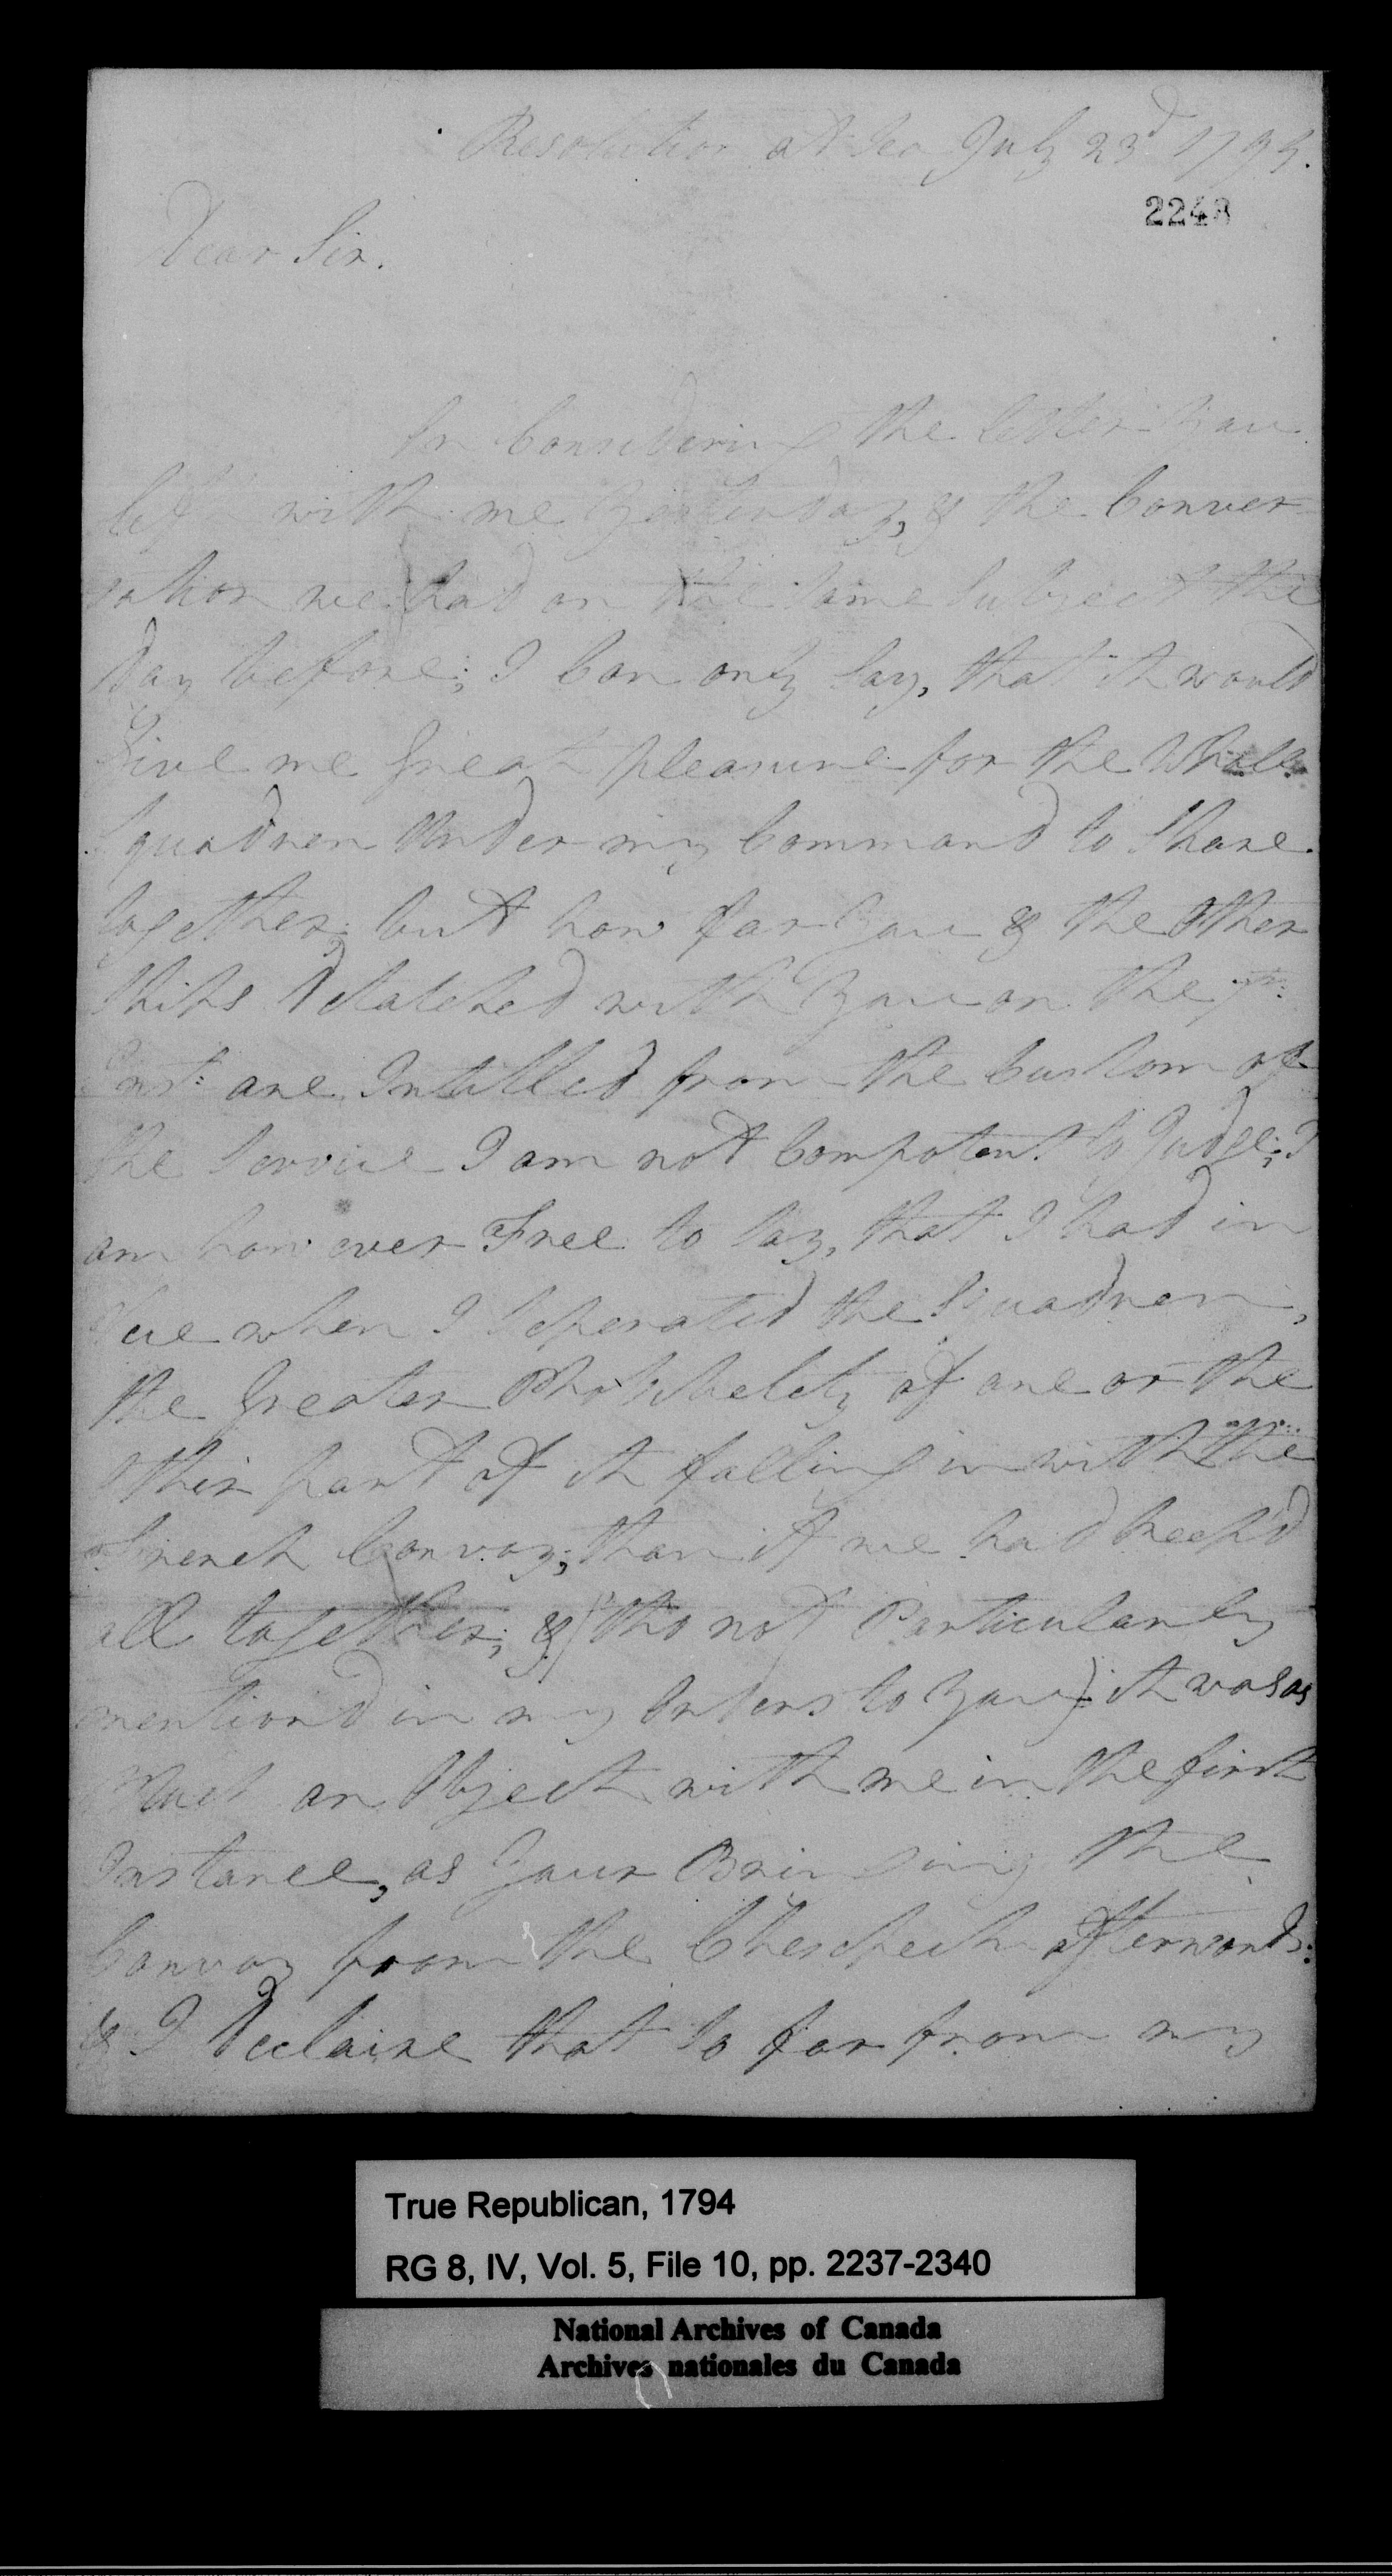 Resolution at Sea July 23d 1794.
2248
Dear Sir.
In Considering the letter You
left with me Yesterday, & the Conver
sation we had on the same Subject the
Day before; I Can only Say, that it would
Give me Great pleasure for the Whole
Squadron Under my Command to Share
together but how far You & the Other
Ships Detatched with You on the
Inst: are Intitled from the Custom of
the Service I am not Compotent to Judge; I
am how ever Free to Say, that I had in
Veiw when I Seperated the Squadron,
the Greater Probabelety of one or the
other part of it falling in with the
French Convoy; than if we had keep'd
all together; & (tho not Particularly
mention'd in my Orders to You) it was as
Much an Object with me in the first
Instance, as Your Bringing the
Convoy from the Chesepeek afterwards:
& I Declaire that So far from my
True Republican, 1794
RG 8, IV, Vol. 5, File 10, pp. 2237-2340
National Archives of Canada
Archives nationales du Canada